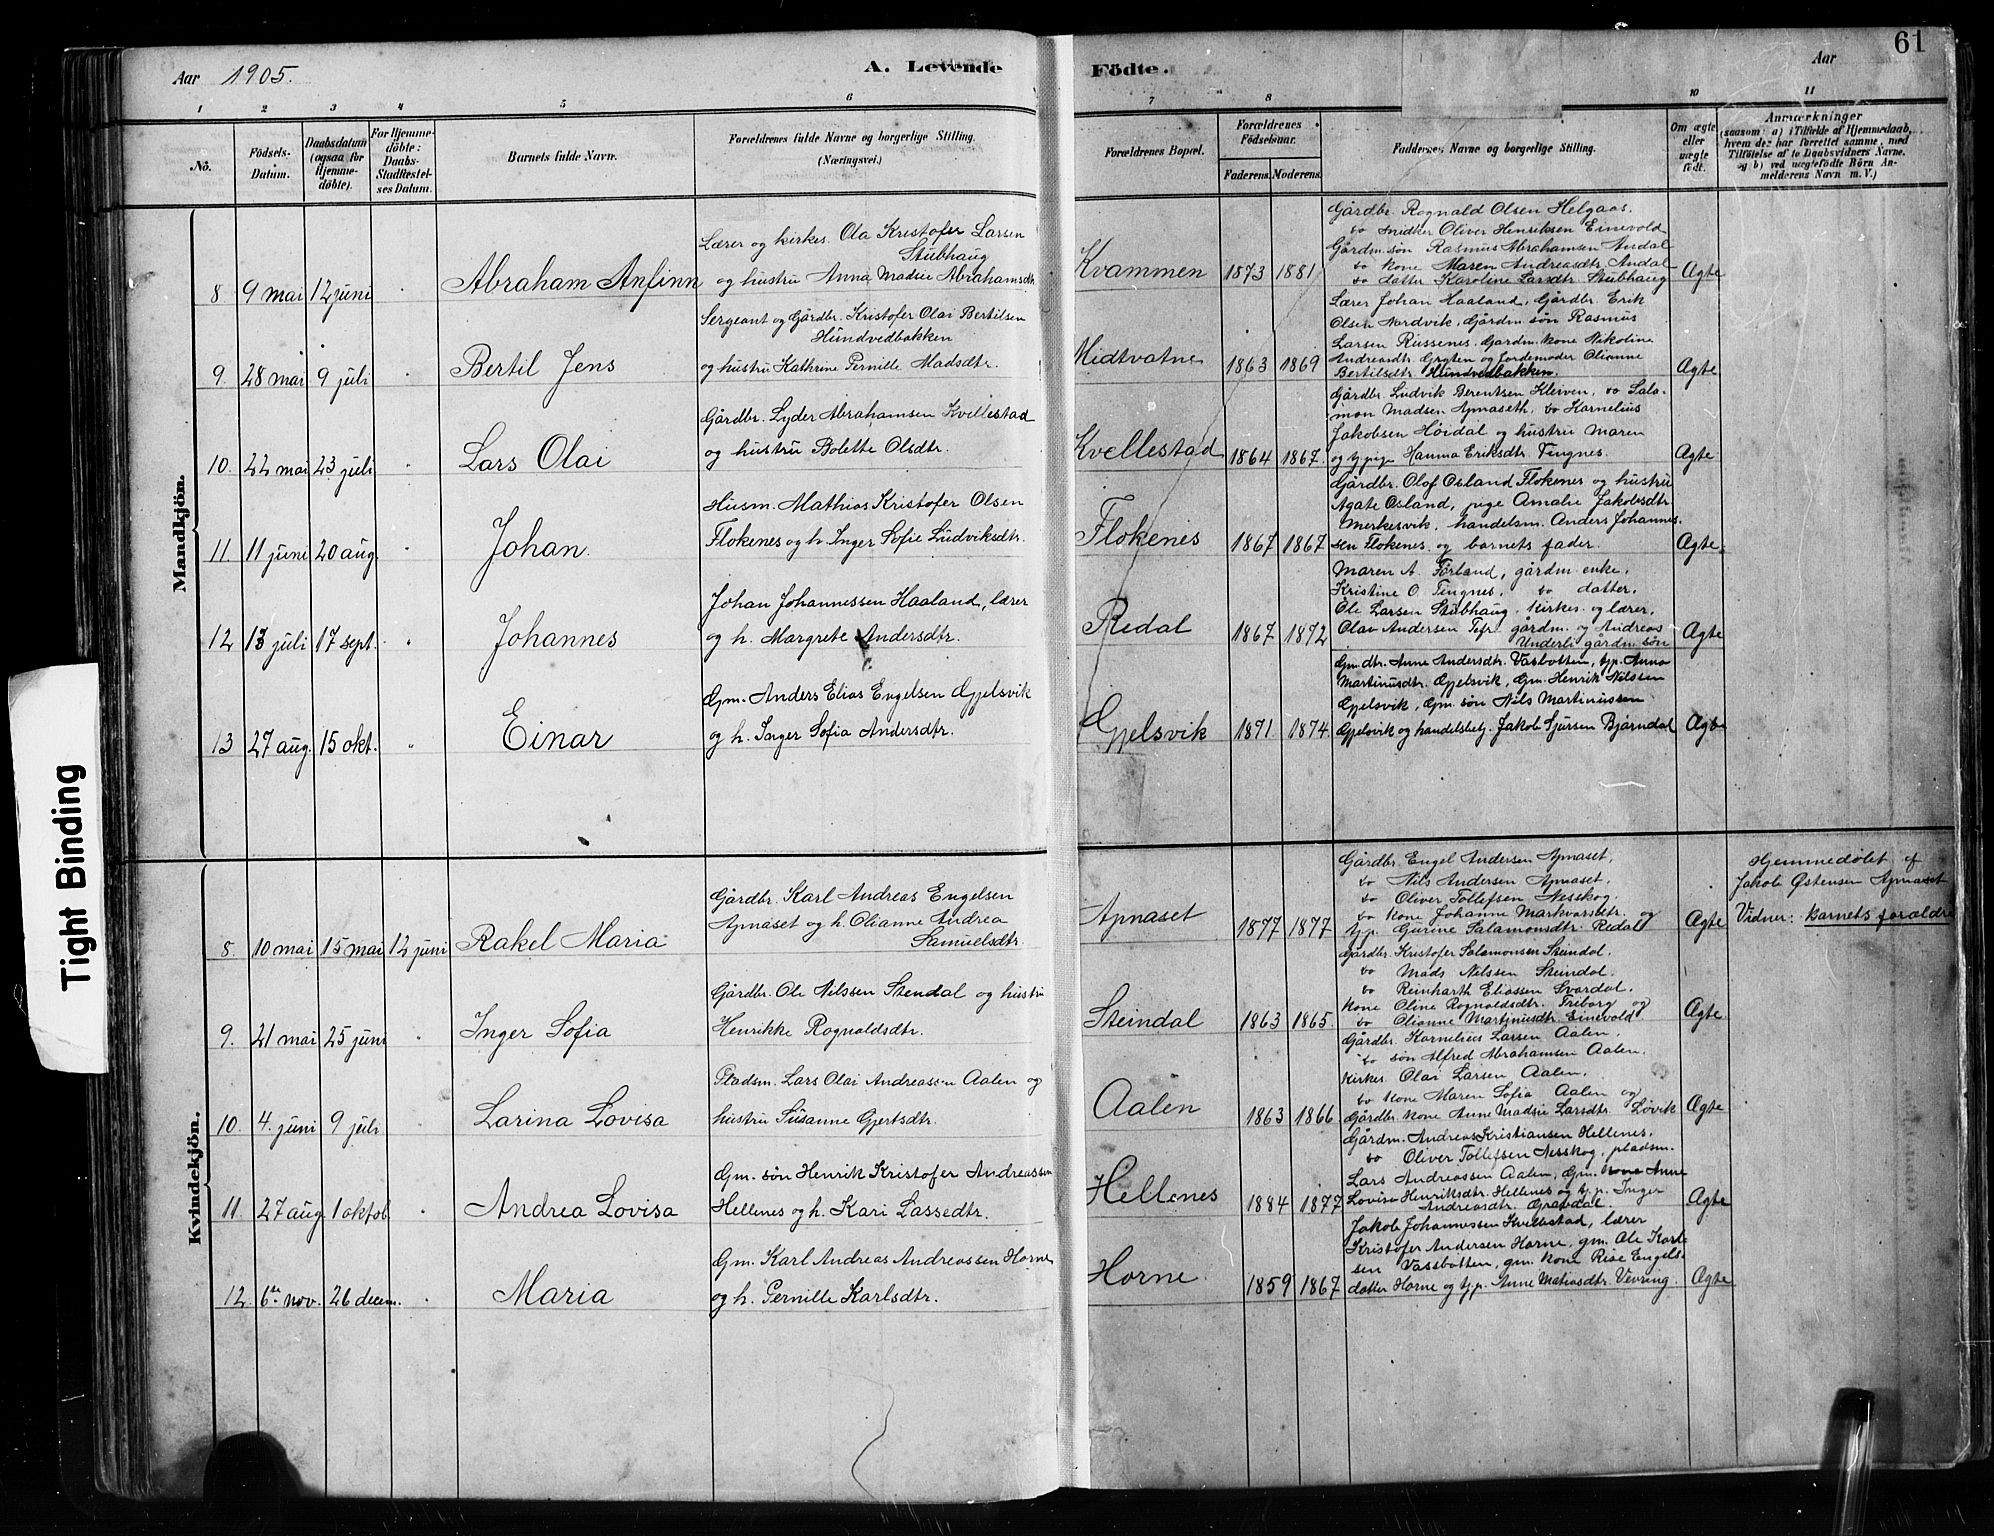 61
Aar 1905. A. Levende Födte. Aar
1 2 3 4 5 6 7 8 10 11
No.
Födsels-Datum.
Daabsdatum (ogsaa for Hjemme-döbte).
For Hjemme-döbte: Daabs-Stadfestel-ses Datum.
Barnets fulde Navn.
Forældrenes fulde Navne og borgerlige Stilling. (Næringsvei.)
Forældrenes Bopæl.
Forældrenes Födselsaar.
Faderens. Moderens.
Faddernes Navne og borgerlige Stilling.
Om ægte eller uægte født.
Anmærkninger
(saasom: a) i Tilfælde af Hjemmedaab,
hvem der har forrettet samme, med
Tilföielse af to Daabsvidners Navne.
og b) ved uægtefödte Börn An-
melderens Navn m. V.)
Mandkjön.
8 9 mai 12 juni Abraham Anfinn
Lærer og kirkes. Ola Kristofer Larsen
Stubhaug
og hustru Anna Madsie Abrahamsdtr.
Kvammen 1873 1881
Gårdbr. Rognald Olsen Helgaas.
do snidker Oliver Henriksen Einevold
Gårdm. søn Rasmus Abrahamsen Andal
do kone Maren Andreasdtr. Andal
do datter Karoline Larsdtr. Stubhaug
Ægte
9. 28 mai 9 juli " Bertil Jens
Sergeant og Gårdbr. Kristofer Olai Bertilsen
Hundvedbakken
og hustru Kathrine Pernille Madsdtr.
Midtvatne 1863 1869
Lærer Johan Haaland, Gårdbr. Erik
Olsen Nordvik, Gårdm. søn Rasmus
Larsen Russenes. Gårdm. kone Nikoline
Andreasdtr. Gryten og Jordemoder Olianne
Bertilsdtr. Hundvedbakken.
Ægte
10. 22 mai 23 juli " Lars Olai
Gårdbr. Lyder Abrahamsen Kvellestad
og hustru Bolette Olsdtr.
Kvellestad 1864 1867.
Gårdbr. Ludvik Berentsen Kleiven, do Salo-
mon Madsen Apnaseth, do Kornelius
Jakobsen Höidal og hustru Maren
og tj.pige Hanna Eriksdtr. Tingnes.
Ægte
11. 11 juni 20 aug. " Johan.
Husm. Mathias Kristofer Olsen
Flokenes og h. Inger Sofie Ludviksdtr.
Flokenes 1867 1867
Gårdbr. Olof Osland Flokenes og hustru
Agate Osland, pige Amalie Jakobsdtr
Merkesvik, handelsm. Anders Johannes-
sen Flokenes, og barnets fader.
Ægte.
12 13 juli 17 sept. " Johannes
Johan Johannessen Haaland, lærer
og h. Margrete Andersdtr.
Redal 1867 1872
Maren A. Förland, gårdm. enke,
Kristine O Tingnes, do datter.
Ole Larsen Stubhaug, kirkes. og lærer,
Olai Andersen Tefr gårdm. og Andreas
Underli gårdm. søn
Ægte
13 27 aug. 15 okt. " Einar
Gm. Anders Elias Engelsen Gjelsvik
og h. Inger Sofia Andersdtr.
Gjelsvik 1871 1874.
Gm. dtr. Anne Andersdtr. Vasbotten, tjp. Anna
Martinusdtr. Gjelsvik, Gm. Henrik Nilssen
Gjelsvik, Gm. søn Nils Martinussen
Gjelsvik og handelsbetj. Jakob Sjursen Bjørndal
Ægte
Kvindekjön.
8. 10 mai 15 mai 12 juni Rakel Maria
Gårdbr. Karl Andreas Engelsen
Apnaset og h. Olianne Andrea
Samuelsdtr.
Apnaset 1877 1877
Gårdbr. Engel Andersen Apnaset.
do Nils Andersen Apnaset.
do Oliver Tollefsen Nesskog.
do kone Johanne Markvarsdtr. og
tjp. Gurine Salamonsdtr. Redal
Ægte
Hjemmedøbt af
Jakob Østensen Apnaset
Vidner: Barnets forældre
9. 21 mai 25 juni " Inger Sofia
Gårdbr. Ole Nilssen Stendal og hustru
Henrikke Rognaldsdtr.
Steindal 1863 1865.
Gårdbr. Kristofer Salamonsen Steindal.
do Mads Nilssen Steindal.
do Reinharth Eliassen Svardal.
Kone Oline Rognaldsdtr. Friborg og
do Olianne Martinusdtr. Einevold
Ægte.
10. 4. juni 9 juli " Larina Lovisa
Pladsm. Lars Olai Andreassen Aalen og
hustru Susanne Gjertsdtr.
Aalen 1863 1866
Gårdbr. Kornelius Larsen Aalen.
do søn Alfred Abrahamsen Aalen.
Kirkes. Olai Larsen Aalen.
do kone Maren Sofia Aalen og
Gårdbr. kone Anne Madsie Larsdtr. Løvik
Ægte
11. 27 aug. 1 oktob. " Andrea Lovisa
Gm. søn Henrik Kristofer Andreassen
Hellenes og h. Kari Lassedtr.
Hellenes 1884 1877
Gårdm. Andreas Kristiansen Hellenes.
do Oliver Tollefsen Nesskog, pladsm.
Lars Andreassen Aalen, Gm. kone Anne
Lovisa Henriksdtr. Hellenes og tj.p. Inger
Andreasdtr. Gravdal.
Ægte
12. 6te nov. 26 decem. " Maria
Gm. Karl Andreas Andreassen Horne
og h. Pernille Karlsdtr.
Horne 1859 1867
Jakob Johannessen Kvellestad, lærer
Kristofer Andersen Horne, gm. Ole Karl-
sen Vassbotten, gm. kone Rise Engels-
datter Horne og tj.p. Anne Matiasdtr. Vevring.
Ægte
Tight Binding